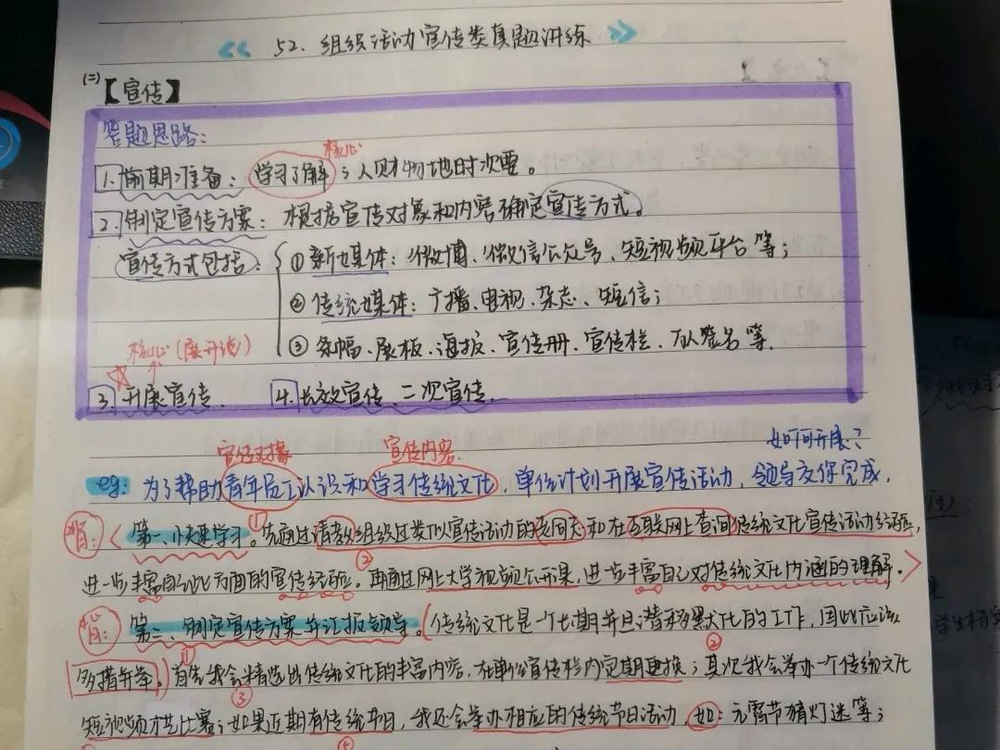 52. 组织活动宣传类真题讲练
(二)【宣传】
答题思路:
核心
1. 前期准备: 学习了解; 人财物地时次要。
2. 制定宣传方案: 根据宣传对象和内容确定宣传方式。
宣传方式包括: ① 新媒体: 微博、微信公众号、短视频平台等;
② 传统媒体: 广播、电视、杂志、短信;
③ 条幅、展板、海报、宣传册、宣传栏、万人签名等.
核心(展开说)
3. 开展宣传. 4. 长效宣传、二次宣传.
宣传对象 宣传内容. 如何开展?
eg: 为了帮助青年员工认识和学习传统文化, 单位计划开展宣传活动, 领导交你完成,
背: 第一、快速学习。①先通过请教组织过类似宣传活动的老同志和在互联网上查询传统文化宣传活动经验,
进一步丰富自己此方面的宣传经验。②再通过网上大学视频公开课, 进一步丰富自己对传统文化内涵的理解.
背: 第二、制定宣传方案并汇报领导。(传统文化是一个长期并且潜移默化的工作, 因此应该
多措并举。) ①首先我会精选出传统文化的丰富内容, 在单位宣传栏内定期更换; ②其次我会举办一个传统文化
短视频才艺比赛; ③如果近期有传统节日, 我还会举办相应的传统节日活动, 如: 元宵节猜灯迷等;
④